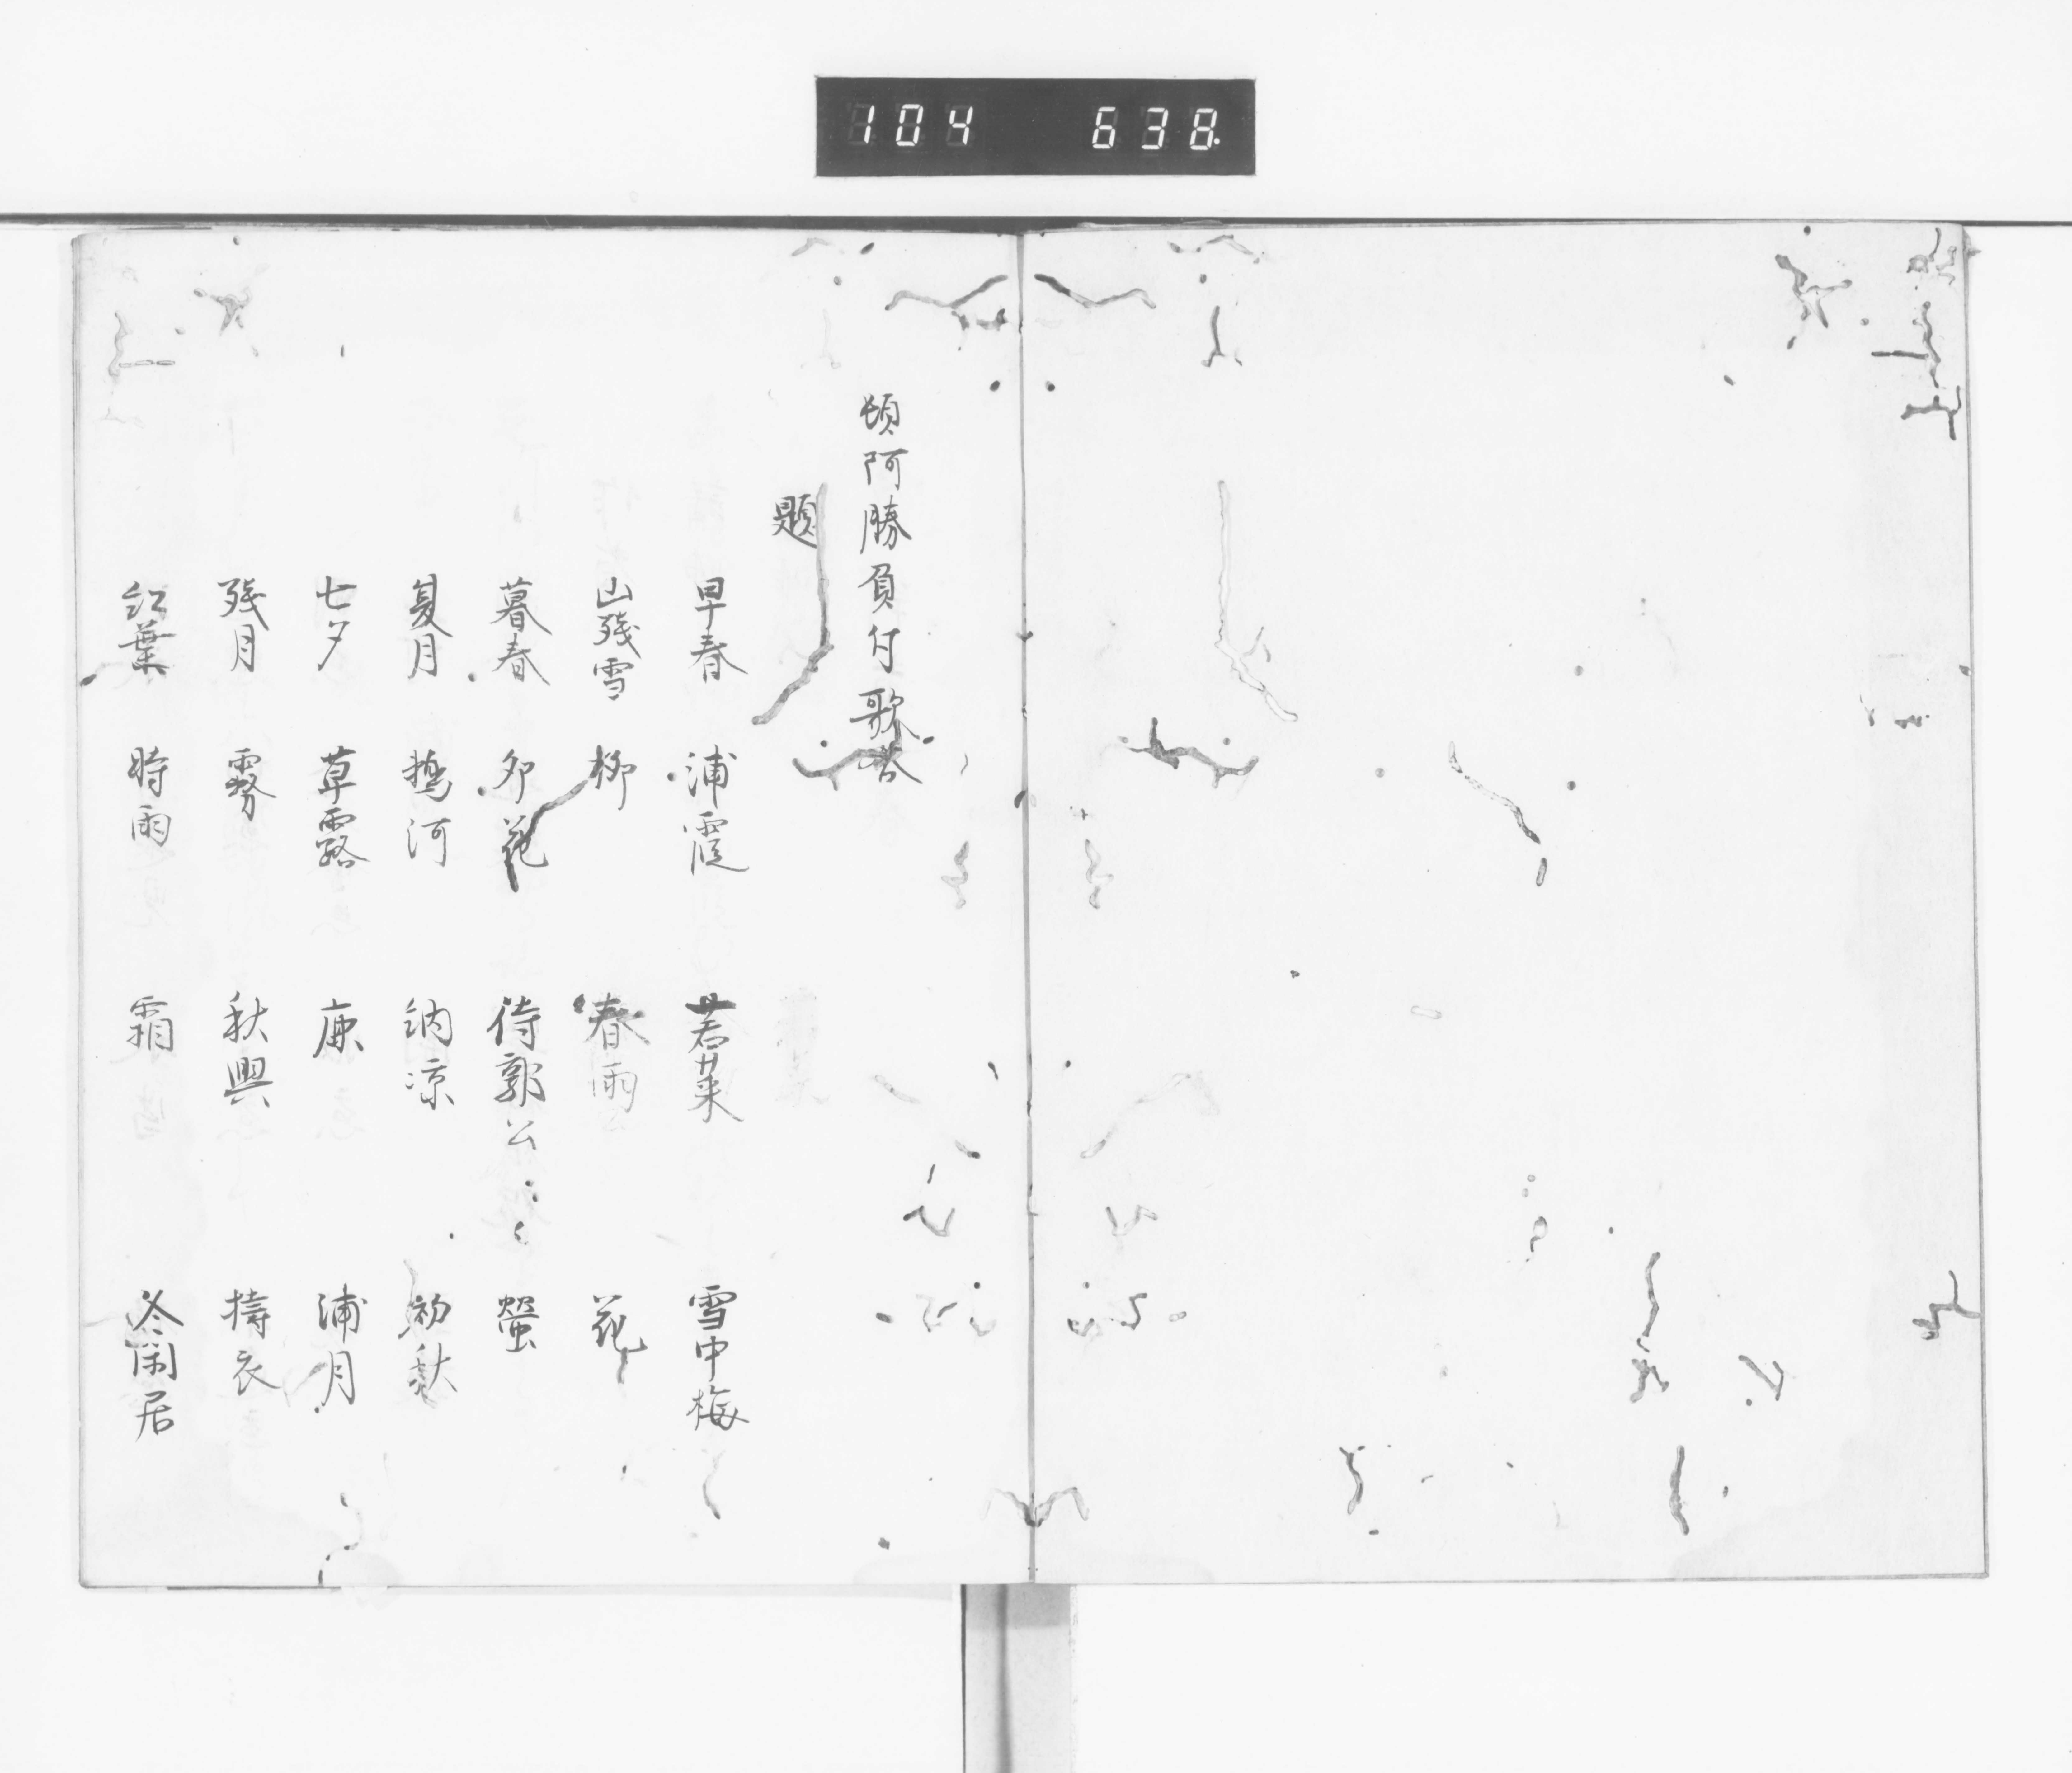 104 638.
頓阿勝負付歌合
題
早春 浦霞 若菜 雪中梅
山残雪 柳 春雨 花
暮春 卯花 待郭公 蛍
夏月 鵜河 納凉 初秋
七夕 草露 鹿 浦月
残月 霧 秋興 擣衣
紅葉 時雨 霜 冬閑居